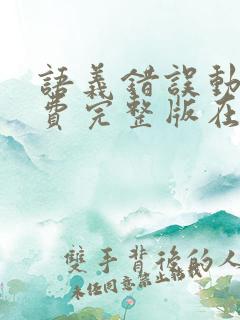 語義錯誤動
費完整版在
雙手背後的人
未任同意禁止轉載